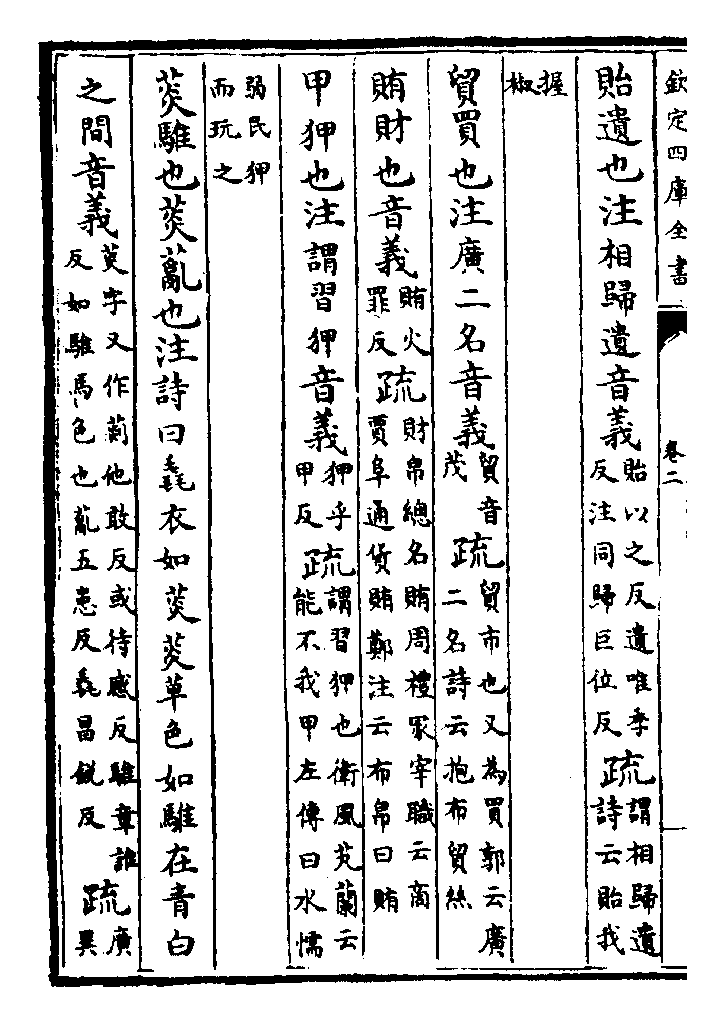 欽定四庫全書
卷二
貽遺也注相歸遺音義貽以之反遺唯季反注同歸巨位反疏謂相歸遺詩云貽我
握椒
貿買也注廣二名音義貿音茂疏貿市也又為買郭云廣二名詩云抱布貿絲
賄財也音義賄火罪反疏財帛總名賄周禮冢宰職云商賈阜通貨賄鄭注云布帛曰賄
甲狎也注謂習狎音義狎乎甲反疏謂習狎也衛風芄蘭云能不我甲左傳曰水懦
弱民狎而玩之
菼騅也菼薍也注詩曰毳衣如菼菼草色如騅在青白
之間音義菼字又作他敢反或待感反騅章誰反如騅馬色也薍五患反毳昌銳反疏廣異